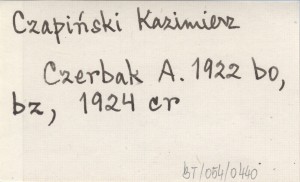 Czapiński Kazimierz
Czerbak A. 1922 bo,
bz, 1924 cr
BT/054/0440